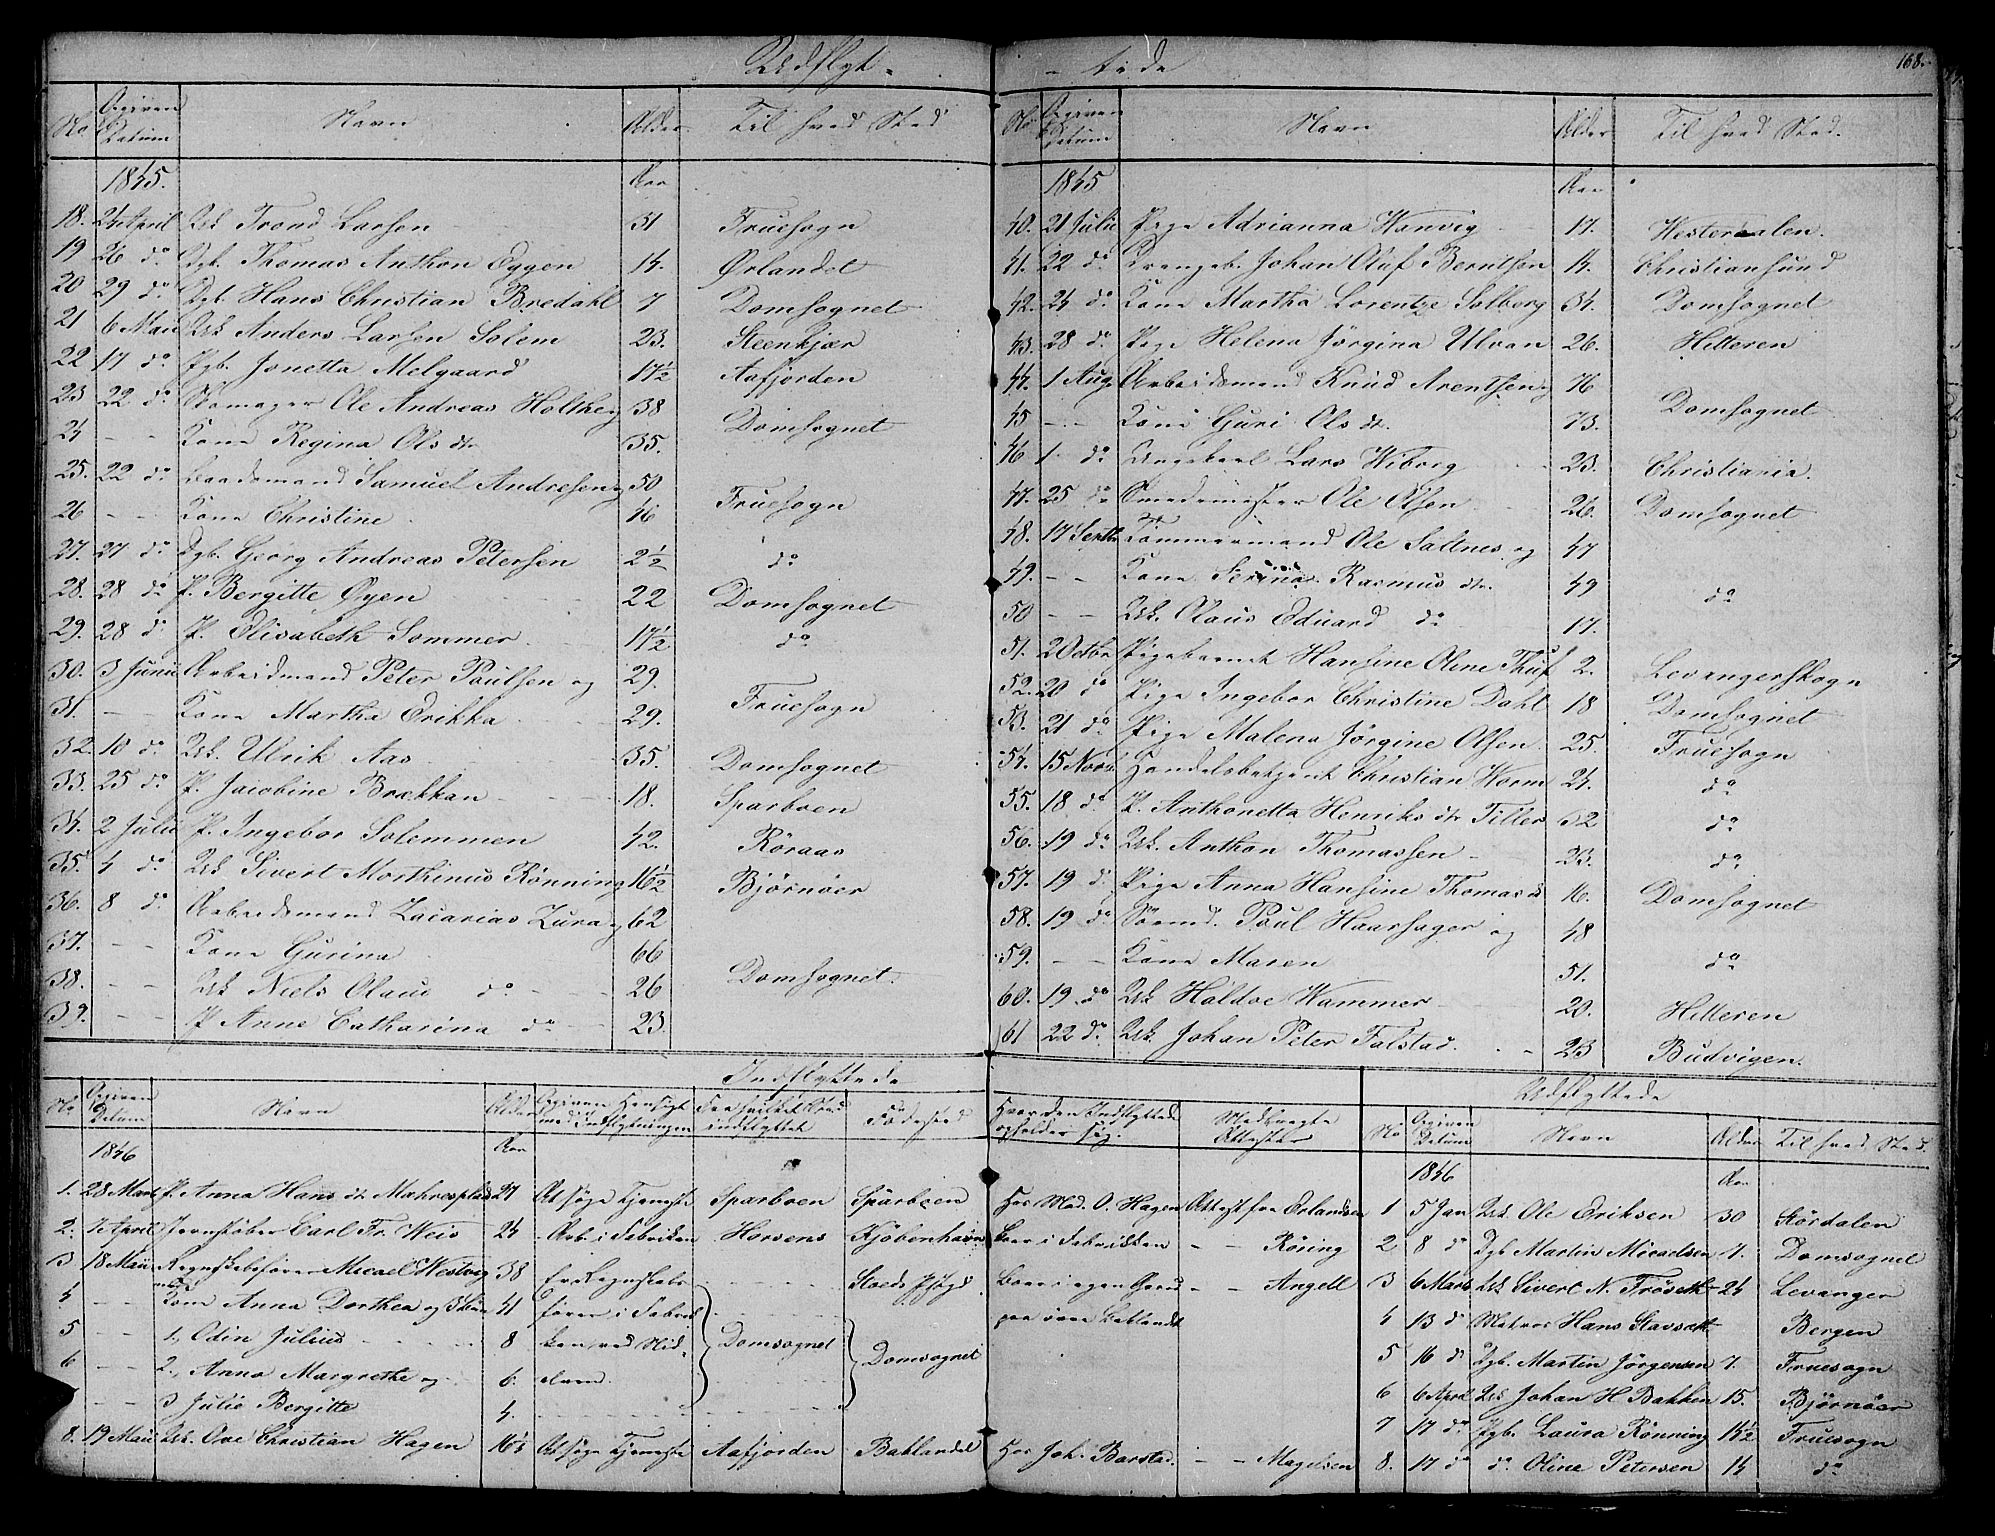 Udflyt-
No Opgiven Datum Navn Alder Til hvad Sted
1845. Aar
18. 24 April Usk Trond Larsen 31 Fruesogn
19 26 do Dgb. Thomas Anthon Eggen 14. Ørlandet
20 29 do Dgb. Hans Christian Bredahl 7 Domsognet
21 6 Maii Usk Anders Larsen Solem 23. Steenkjær
22 17 do Pgb. Jonetta Melgaard 17½ Aafjorden
23 22 do Skomager Ole Andreas Holthe og 38 Domsognet
24 - - Kone Regina Ols dtr 35.
25. 22 do Baadsmand Samuel Andresen og 50 Fruesogn
26 - - Kone Christine 46
27. 27 do Dgb. Georg Andreas Petersen 2½ do
28. 28 do P. Bergitte Øyen 22 Domsognet
29. 28 do P. Elisabeth Sommer 17½ do
30. 3 Junii Arbeidsmand Peter Poulsen og 29. Fruesogn
31. - - Kone Martha Erikka 29.
32. 10 do Usk. Ulrik Aas 35. Domsognet
33. 25 do P. Jacobine Brækkan 18. Sparboen
34. 2 Julii P. Ingebor Solemmen 42. Röraas
35. 4 do Usk Sivert Morthinus Rönning 16½ Bjørnøer
36. 8 do Arbeidsmand Zacarias Zura og 62 Domsognet.
37. - - Kone Gurina 66
38. - - Usk Niels Olaus do 26
39. - - P Anne Catharina do 23.
-tede 168.
No Opgiven Datum Navn Alder Til hvad Sted.
1845 Aar
40. 21 Julii Pige Adrianna Wanvig 17. Westeraalen.
41. 22 do Drengeb. Johan Oluf Berntsen 14. Christiansund
42. 24 do Kone Martha Lorentze Solberg 34. Domsognet
43. 28 do Pige Helena Jørgina Ulvan 26. Hitteren
44. 1 Aug. Arbeidsmand Knud Arentsen og 76 Domsognet
45 - - Kone Guri Ols dtr. 73.
46 1 do Ungekarl Lars Wiborg 23. Christiania.
47. 25 do Smedemester Ole Olsen 26. Domsognet
48. 17 Septbr Tömmermand Ole Saltnes og 47 do
49. - - Kone Serina Rasmus dtr. 49
50 - - Usk. Olaus Eduard do 17.
51. 2 Octbr Pigebarnet Hansine Oline Thuf 2. Levangerskogn
52. 20 do Pige Ingebor Christine Dahl 18 Domsognet
53. 21 do Pige Malena Jörgine Olsen 25. Fruesogn
54. 15 Novb. Handelsbetjent Christian Worm 24. do
55. 18 do P. Anthonetta Henriks dtr Tiller 32 do
56. 19 do Usk. Anthon Thomassen 23. do
57. 19 do Pige Anna Hansine Thomas d. 16. Domsognet
58. 19 do Sömd. Poul Haarsager og 48 do
59. - - Kone Maren 51.
60. 19 do Usk Haldoe Wammer 20. Hitteren
61 22 do Usk. Johan Peter Falstad. 23 Budvigen.
Indflyttede
No Opgiven Datum Navn Alder Opgiven Hensigt med Indflytningen Fra hvilket Sted indflyttet Fødested Hvor den Indflyttede opholder sig. Medbragte Attester
1846 Aar
1. 28 Marts P. Anna Hans dtr Mæhresplads 27 At söge Tjeneste Sparboen Sparboen Hos Mad. O. Hagen Attest fra Ørlandsen
2. 7 April Jernstøber Carl Fr. Weis 24 Arb. i Fabriken Horsens Kjöbenhavn boer i Fabrikken - - Röring
3 18 Maii Regnskabsfører Micael Westvig med 38 for Regnskabs- Boer i egen Gaard - - Angell
4 - - Kone Anna Dorthea og 3 Börn 41 fører i Fabrik- paa övre Baklandet
5 - - 1., Odin Julius 8 ken ved Nid- Domsognet Domsognet
6 - - 2., Anna Margrethe og 6. elven
7 - - 3 Julie Bergitte 4.
8. 19 Maii Usk. Ove Christian Hagen 16½ At söge Tjeneste Aafjorden Baklandet Hos Joh. Barstad. - - Magelsen
Udflyttede
No Opgiven Datum Navn Alder Til hvad Sted.
1846 Aar
1 5 Jan Usk Ole Eriksen 30 Stördalen
2 8 do Dgb Martin Micaelsen 7. Domsognet
3 6 Marts Usk Sivert N. Fröseth 24 Levanger
4 13 do Matros Hans Stavseth Bergen
5 16 do Dgb. Martin Jörgensen 7. Fruesogn
6 6 April Usk Johan H Bakken 15. Björnöer
7 17 do Pgb. Laura Rönning 14½ Fruesogn
8. 17 do do. Oline Petersen 14 do